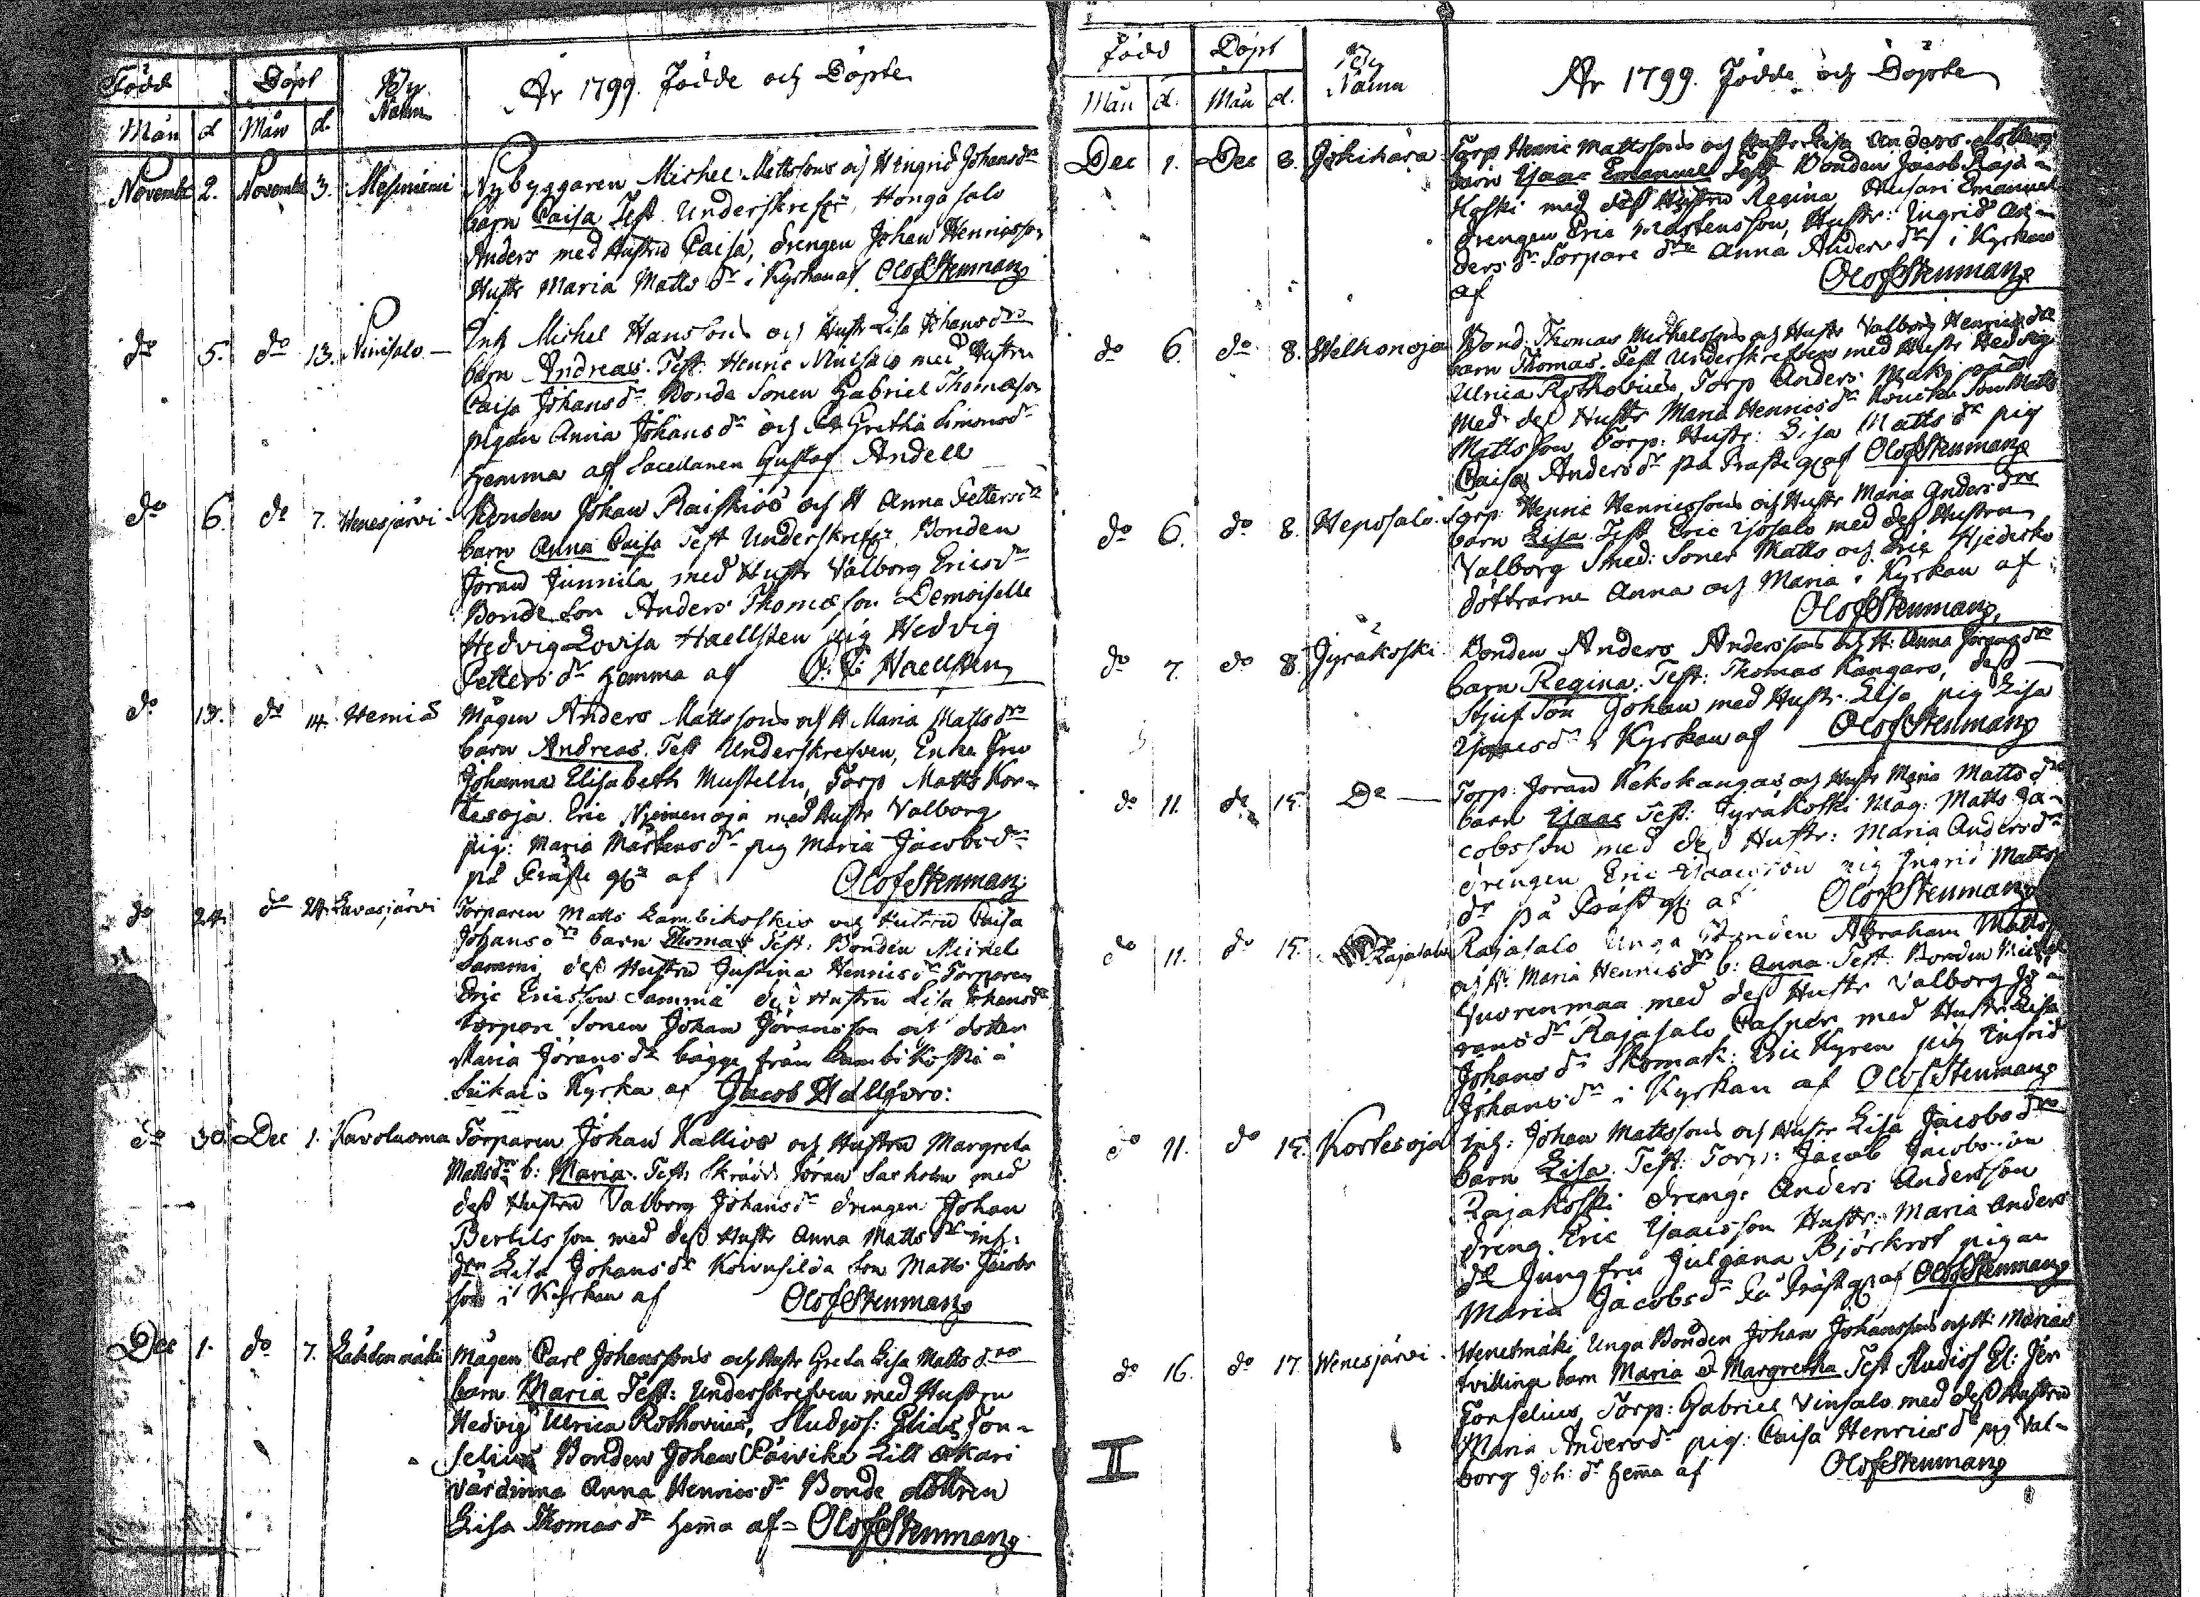 Född Döpt By Namn År 1799. Födde och Döpte
Mån d Mån d.
Novemb 2. Novemb 3. Mesiniemi Nybyggaren Michel Mattssons och H Ingrid Johans drs
barn Caisa Test. Underskrefvn, Hongasalo
Anders med Hustru Caisa, drengen Johan Henricsson
Hustr Maria Matts dr i Kyrkan af Olof Stenman
do 5. do 13. Ninisalo Inh Michel Hanssons och Hustr Lisa Johans drs
barn Andreas. Test. Henric Ninisalo med Hustru
Caisa Johans dr. Bonde Sonen Gabriel Thomasson
pigan Anna Johans dr och Gretha Simons dr
hemma af Sacellanen Gustaf Andell
do 6. do 7. Wenesjärvi Bonden Johan Raiskios och H Anna Petters drs
barn Anna Caisa Test Underskrefvn Bonden
Jöran Junnila med Hustr Valborg Erics dr
Bonde Son Anders Thomasson Demoiselle
Hedvig Lovisa Haellsten pig Hedvig
Petters dr hemma af Haellsten
do 13. do 14. Hemiä Mågen Anders Mattssons och H Maria Matts drs
barn Andreas. Test Underskrefven, Enke Fru
Johanna Elisabeth Mustelin, Torp Matts Kor-
tesoja. Eric Niemenoja med Hustr Valborg
pig: Maria Mårtens dr pig Maria Jacobs dr
på Präste gn af Olof Stenman
do 24. do 24. Lavasjärvi Torparen Matts Lambikoskis och Hustru Caisa
Johans drs barn Thomas Test: Bonden Michel
Sammi dess Hustru Justina Henrics dr Torparen
Eric Ericsson Samma dess Hustru Lisa Johans dr
torpare Sonen Johan Jöransson och dotter
Maria Jörans dr bägge från Lambikoski i
Kyrka af Jacob Hallfors:
do 30 Dec 1. Kavoluoma Torparen Johan Kallios och Hustru Margreta
Matts drs b: Maria. Test: Skrädd Jöran Saxholm med
dess Hustru Valborg Johans dr drengen Johan
Bertilsson med dess Hustr Anna Matts dr inh:
Lisa Johans dr Son Matts Jacobs
son i Kyrkan af Olof Stenman
Dec 1. do 7. Mågen Carl Johanssons och Hustr Greta Lisa Matts drs
barn Maria Test: Underskrefven med Hustru
Hedvig Ulrica Rothovius, Studios: Elias Fon-
selius Bonden Johan Päivike Lill Kari
värdinna Anna Henrics dr Bonde dottren
Lisa Thomas dr hema af Olof Stenman
Född Döpt By Namn År 1799. Födde och Döpte
Mån d. Mån d.
Dec 1. Dec 8. Jokihara Torp Henric Mattssons och Hustr Lisa Anders dotters
barn Isaac Emanuel Test Bonden Jacob Raja-
koski med dess Hustru Regina Husari Emanuel
drengen Eric Mårtensson, Hustr: Ingrid An-
ders dr Torpare dr Anna Anders dr i Kyrkan
af Olof Stenman
do 6. do 8. Welkonoja Bond. Thomas Michelssons och Hustr Valborg Henrics drs
barn Thomas. Test Underskrefven med Hustr Hedvig
Ulrica Rothovius, Torp Anders Mäkipää
Med dess Hustr Maria Henrics dr Son Matts
Mattsson Torp: Hustr: Lisa Matts dr pig
Caisa Anders dr på Präste g af Olof Stenman
do 6. do 8. Heposalo. Torp: Henric Henricssons och Hustr Maria Anders drs
barn Lisa Test Eric Isosalo med dess Hustru
Valborg Smed: Soner Matts och Eric Hjedisko
döttrarne Anna och Maria i Kyrkan af
Olof Stenman
do 7. do 8. Jyräkoski Bonden Anders Anderssons och H: Anna Jörans drs
barn Regina. Test: Thomas Kangars, dess
Stjuf Son Johan med Hustr: Lisa pig Lisa
Isaacs dr i Kyrkan af Olof Stenman
do 11. do 15. Do Torp: Jöran Kekokangas och Hustr Maria Matts drs
barn Isaac Test: Jyräkoski Måg: Matts Ja-
cobsson med dess Hustr: Maria Anders dr
drengen Eric Isaacsson pig Ingrid Matts
dr på Präst g: af Olof Stenman
do 11. do 15. Rajasalo Rajasalo Unga Bonden Abraham Matts
och H: Maria Henrics drs b: Anna. Test: Bonden Michel
Juorenmaa med dess Hustr Valborg Jö-
rans dr Rajasalo Casper med Hustr Lisa
Johans dr Skomak: Eric Kyren pig Ingrid
Johans dr i Kyrkan af Olof Stenman
do 11. do 15. Kortesoja Inh: Johan Mattssons och Hustr Lisa Jacobs drs
barn Lisa. Test: Torp: Jacob Jacobsson
Rajakoski dreng: Anders Andersson
dreng. Eric Isaacsson Hustr: Maria Anders
dr Jungfru Juliana Björkrot pigan
Maria Jacobs dr På Präst g af Olof Stenman
do 16. do 17. Wenesjärvi Wenetmäki Unga Bonden Johan Johanssons och H: Marias
tvilling barn Maria & Margretha Test Studios El: Jer
Fonselius, Torp: Gabriel Vinsalo med dess Hustru
Maria Anders dr pig: Caisa Henrics dr pig Val-
borg Joh: dr hema af Olof Stenman
II